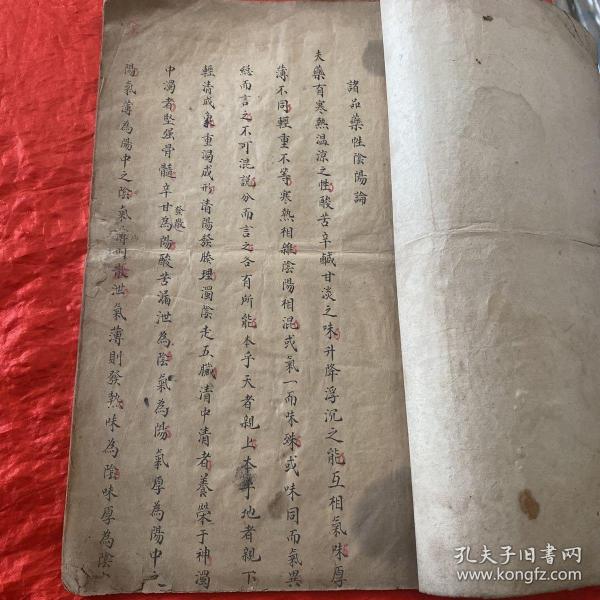 諸品藥性陰陽論
夫藥有寒熱温涼之性酸苦辛鹹甘淡之味升降浮沉之能互相氣味厚
薄不同輕重不等寒熱相雜陰陽相混或氣一而味殊或味同而氣異
總而言之不可混説分而言之各有所能本乎天者親上本乎地者親下
輕清成象重濁成形清陽發腠理濁陰走五臟清中清者養榮于神濁
中濁者堅强骨髓辛甘發散為陽酸苦漏泄為陰氣為陽氣厚為陽中之
陽氣薄為陽中之陰氣薄則散泄氣薄則發熱味為陰味厚為陰
孔夫子旧书网
www.kongfz.com